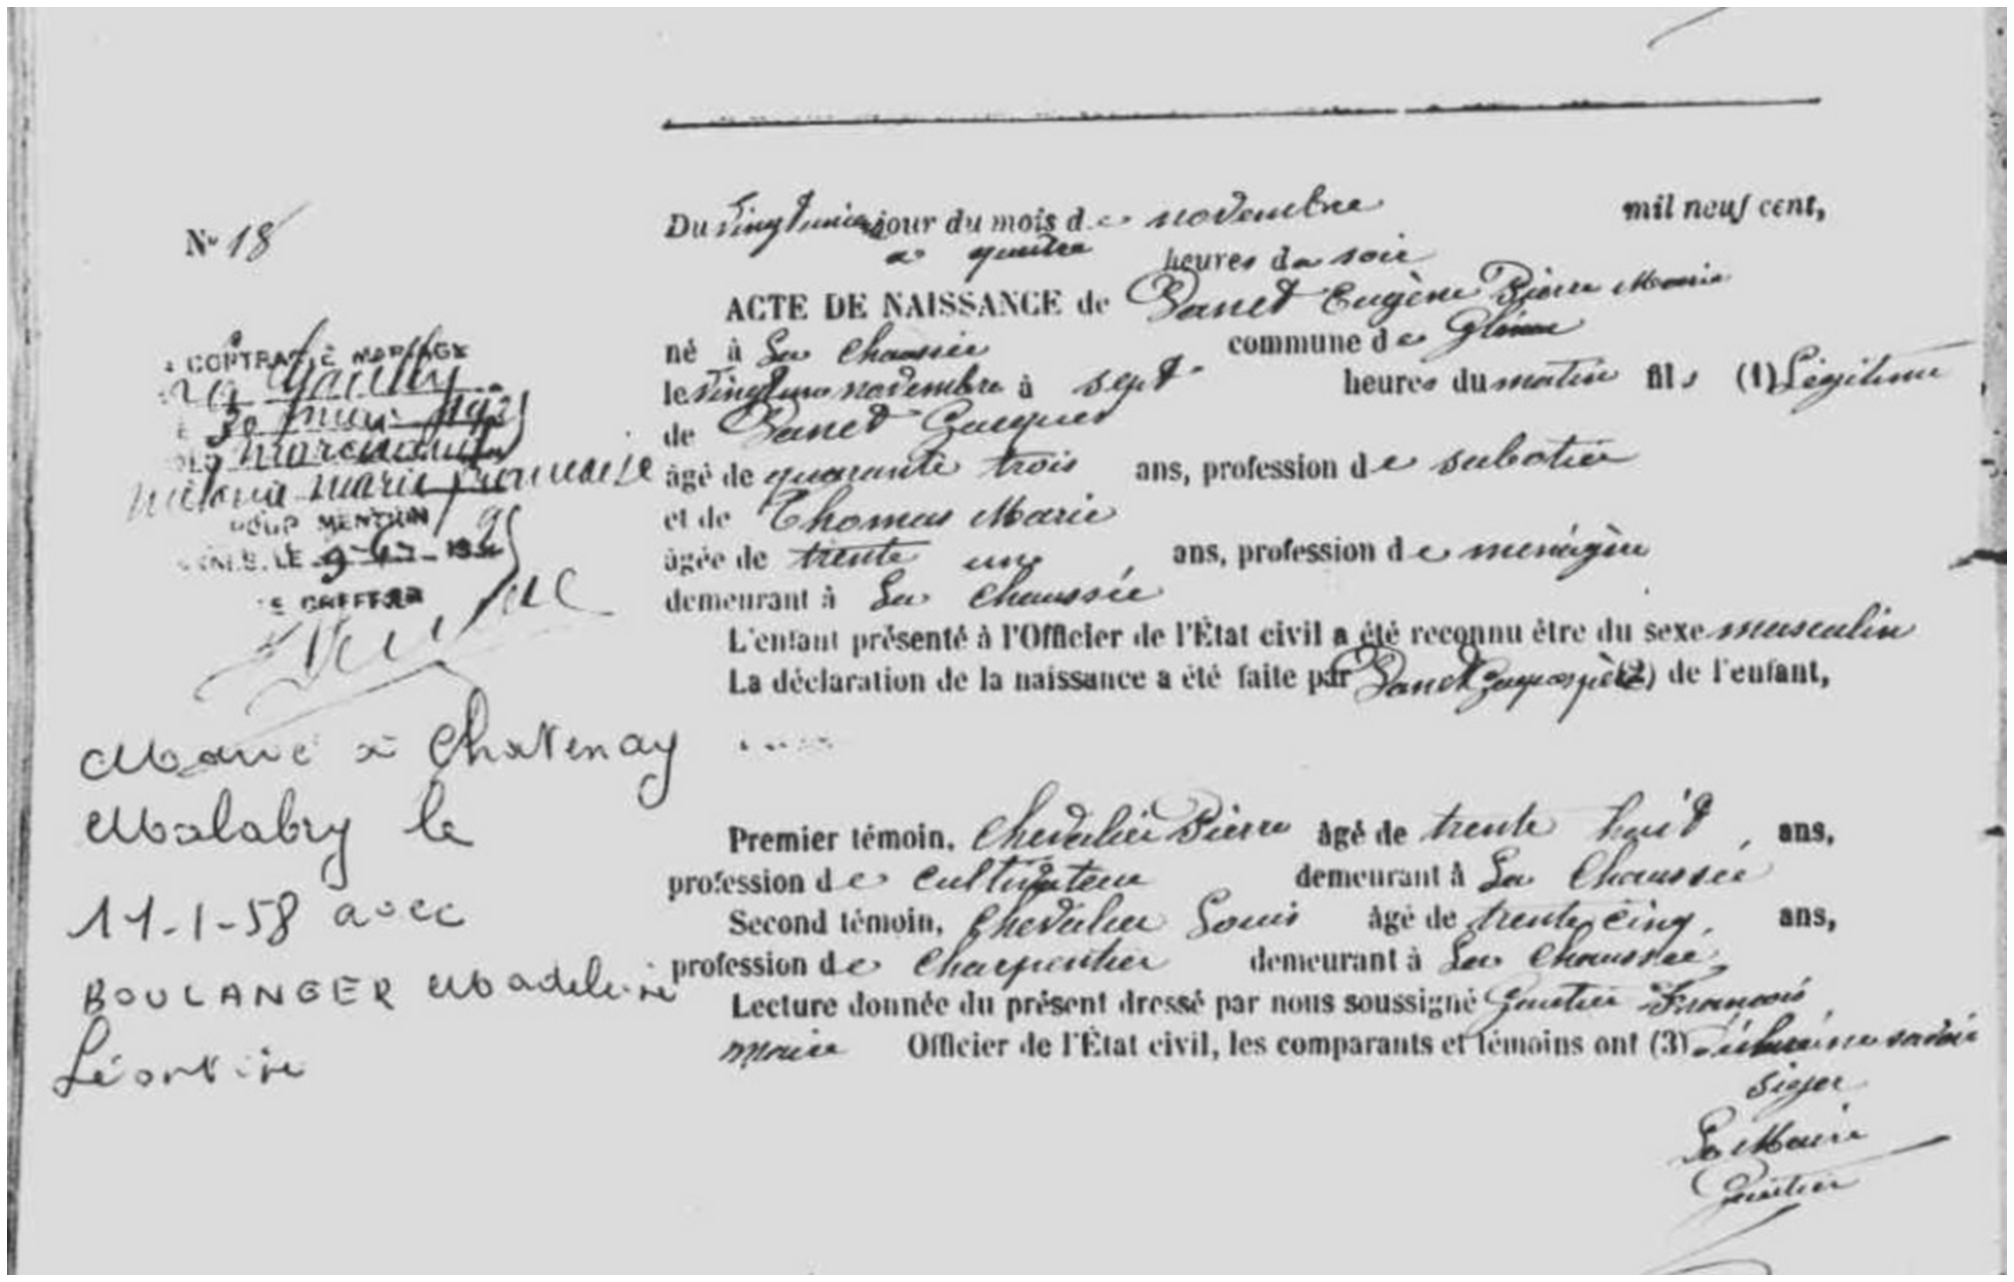 N° 18
Du vingt unième jour du mois de novembre mil neuf cent,
a quatre heures du soir
ACTE DE NAISSANCE de Danet Eugène Pierre Marie
né à La Chaussée commune de
le vingt un novembre à sept heures du matin fils (1) Légitime
de Danet Jacques
âgé de quarante trois ans, profession de sabotier
et de Thomas Marie
âgée de trente un ans, profession de menagère
demeurant à La Chaussée
L'enfant présenté à l'Officier de l'État civil a été reconnu être du sexe masculin
La déclaration de la naissance a été faite par Danet Jacques père (2) de l'enfant,
Premier témoin, Chevalier Pierre âgé de trente huit ans,
profession de cultivateur demeurant à La Chaussée
Second témoin, Chevalier Louis âgé de trente cinq, ans,
profession de charpentier demeurant à La Chaussée
Lecture donnée du présent dressé par nous soussigné Gautier François
maire Officier de l'État civil, les comparants et témoins ont (3) déclaré ne savoir
signer
Le Maire
Gautier
A CONTRACTÉ MARIAGE
30 mai
marie françoise
POUR MENTION
LE GREFFIER
Marié à Chatenay
Malabry le
11-1-58 avec
BOULANGER Madeleine
Léontine